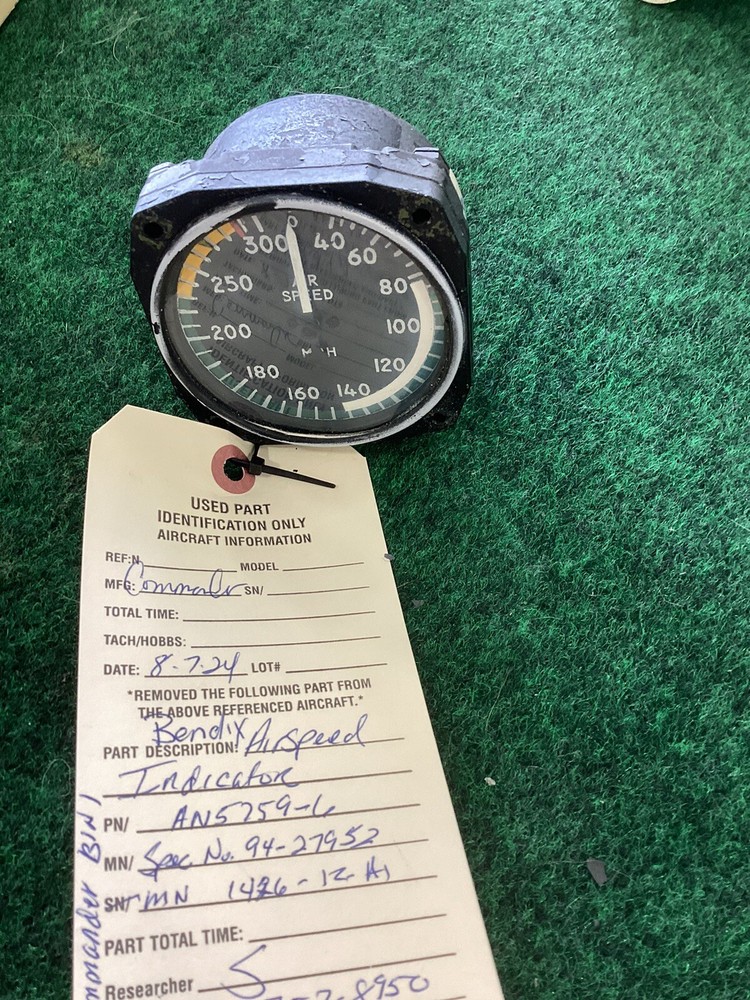 0
300 40
60
250 AIR 80
SPEED
100
200
M H
120
180
160 140
USED PART
IDENTIFICATION ONLY
AIRCRAFT INFORMATION
REF:N MODEL
MFG: SN/
TOTAL TIME:
TACH/HOBBS:
DATE: 8-7-24 LOT#
*REMOVED THE FOLLOWING PART FROM
THE ABOVE REFERENCED AIRCRAFT.*
Bendix
PART DESCRIPTION: Airspeed
Indicator
PN/ AN5759-6
MN/ Spec No. 94-27952
SN/ MN 1426-12-A1
PART TOTAL TIME:
Researcher S
7-8950
mmander BIN 1